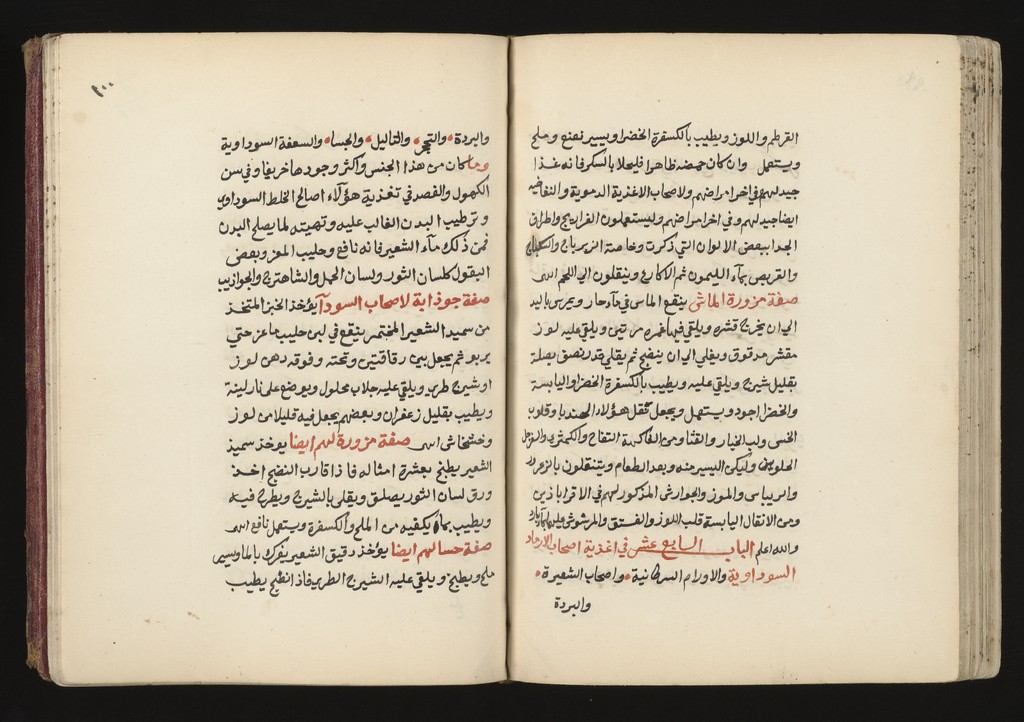 القرطم واللوز ويطيب بالكسفرة الخضرا ويسير نعنع وملح
ويستعمل وان كان حمضه ظاهرا فليحلا بالسكر فانه غذا
جيد لهم في اخر امراضهم ولاصحاب الاغذية الدموية والنفاخيه
ايضا جيد لهم وفي اخر امراضهم وليستعملون الفراريج واطراف
الجدا ببعض الالوان التي ذكرت وخاصة الزيرباج
والقريص بماء الليمون ثم الاكارع وينقلون الي اللحم
صفة مزورة الماش ينقع الماش في ماء حار ويمرس باليد
الي ان يخرج قشره ويلقي فيها غمره مرتين ويلقي عليه لوز
مقشر مدقوق ويغلي الي ان ينضج ثم يقلي قدر نصف بصلة
بقليل شيرج ويلقي عليه ويطيب بالكسفرة الخضرا واليابسة
والخضرا اجود ويستعمل ويجعل نقل هؤلاء الهندبا وقلوب
الخس ولب الخيار والقثا ومن الفاكهة التفاح والكمثري
الحلو وليكن اليسير منه وبعد الطعام ويتنقلون بالزعرور
والريباس والموز والجوارش المذكور لهم في الاقراباذين
ومن الانقال اليابسة قلب اللوز والفستق والمرشوش
والله اعلم الباب السابع عشر في اغذية اصحاب
السوداوية والاورام السرطانية واصحاب الشعيرة
والبردة
١٠٠
والبردة والتحجر والثاليل والجسا والسعفة السوداوية
وما كان من هذا الجنس واكثر وجودها خريفا وفي سن
الكهول والقصد في تغذية هؤلاء اصالح الخلط السوداوي
وترطيب البدن الغالب عليه وتهيته لما يصلح البدن
فمن ذلك ماء الشعير فانه نافع وحليب المعز وبعض
البقول كلسان الثور ولسان الحمل والشاهترج والجواذيب
صفة جوذابة لاصحاب السودآ يؤخذ الخبز المتخذ
من سميد الشعير المختمر ينقع في لبن حليب ماعز حتي
يربو ثم يجعل بين رقاقتين وتحته وفوقه دهن لوز
او شيرج طري ويلقي عليه جلاب محلول ويوضع على نار لينة
ويطيب بقليل زعفران وبعضهم يجعل فيه قليلا من لوز
وخشخاش صفة مزورة لهم ايضا يوخذ سميذ
الشعير يطبخ بعشرة امثاله فاذا قارب النضج اخذ
ورق لسان الثور يصلق ويقلي بالشيرج ويطرح فيه
ويطيب بما يكفيه من الملح والكسفرة ويستعمل نافع
صفة حسا لهم ايضا يؤخذ دقيق الشعير يفرك بالما ويسير
ملح ويطبخ ويلقي عليه الشيرج الطري فاذا انطبخ يطيب